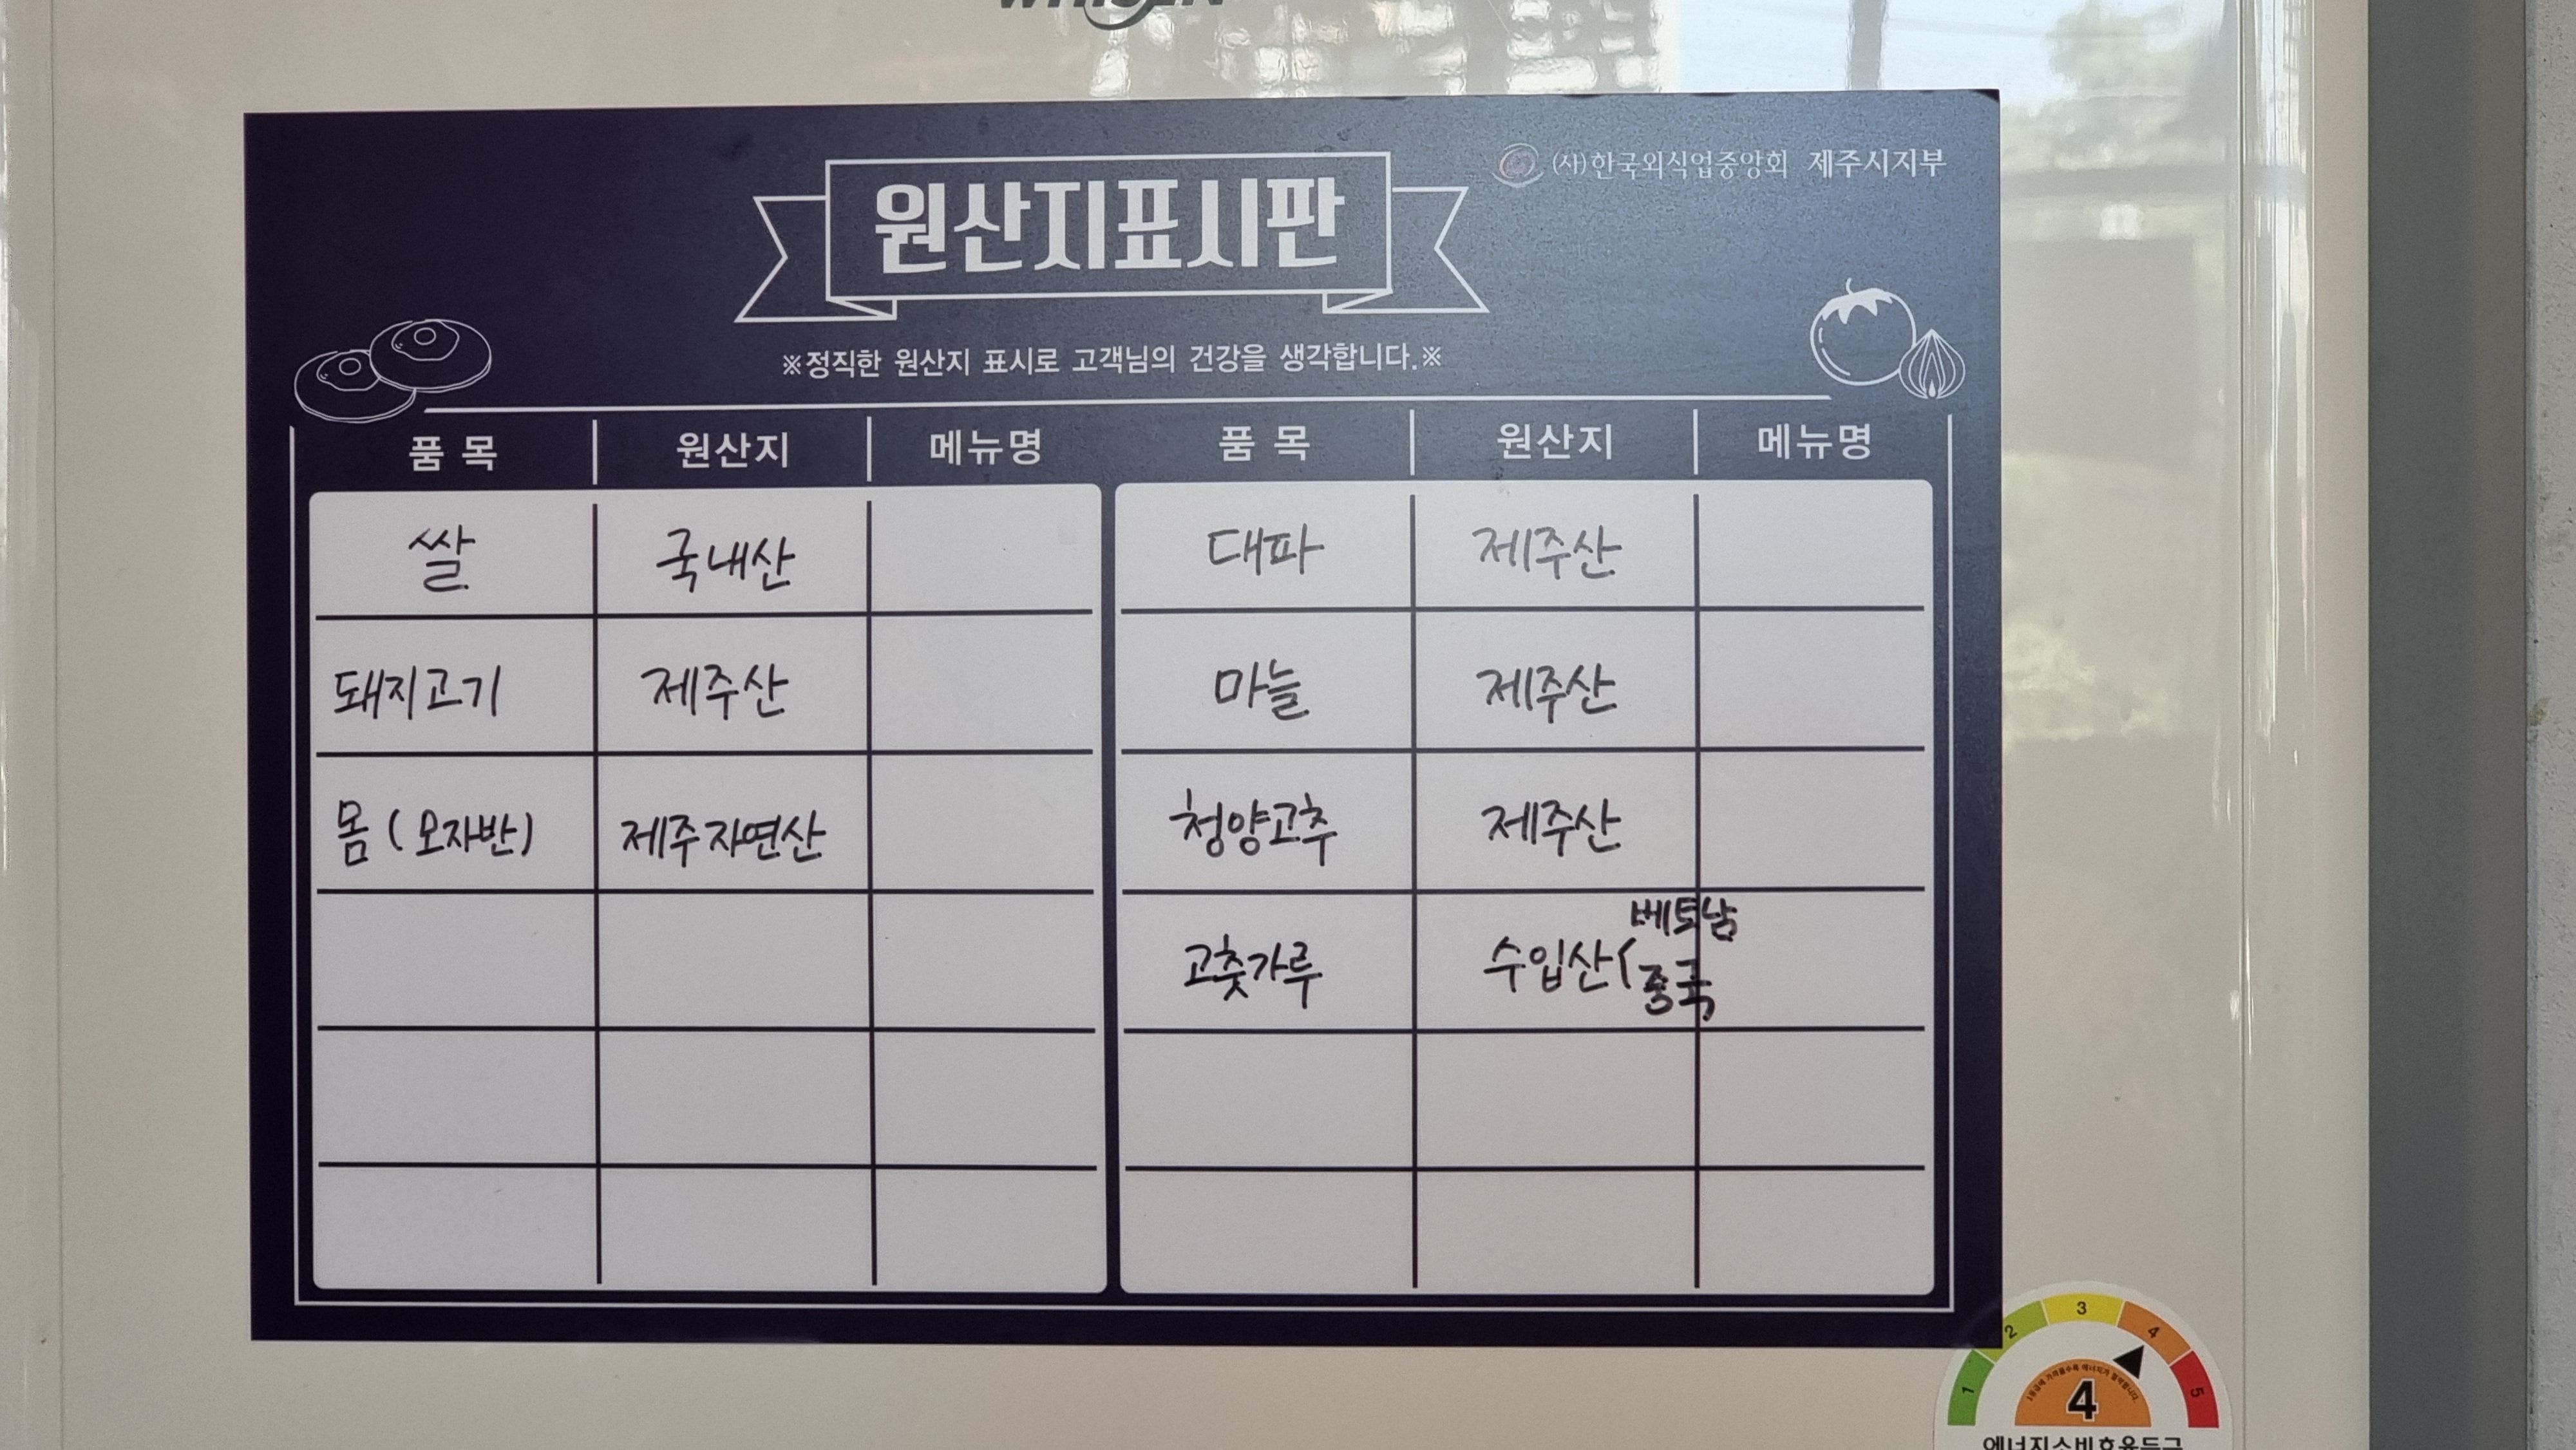 (사)한국외식업중앙회 제주시지부
원산지표시판
※정직한 원산지 표시로 고객님의 건강을 생각합니다.※
품 목 원산지 메뉴명 품 목 원산지 메뉴명
쌀 국내산 대파 제주산
돼지고기 제주산 마늘 제주산
몸 (모자반) 제주자연산 청양고추 제주산
고춧가루 수입산( 베트남
중국
1 2 3 4 5
4